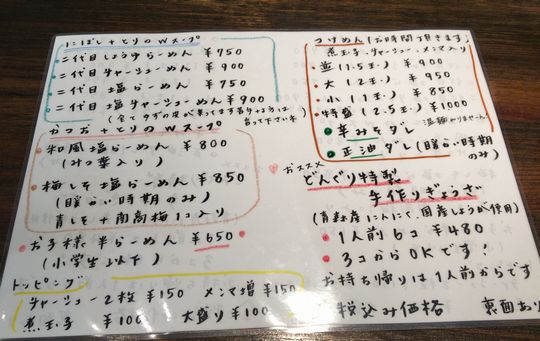 にぼしとりのWスープ
二代目しょうゆらーめん ¥750
二代目チャーシューめん ¥900
二代目塩らーめん ¥750
二代目塩チャーシューめん ¥900
かつおとりのWスープ
和風塩らーめん ¥800
(みつ葉入り)
梅しそ塩らーめん ¥850
(暖らい時期のみ)
青しそ+南高梅1コ入り
お子様半らーめん ¥650
(小学生以下)
トッピング
チャーシュー2枚 ¥150 メンマ増 ¥150
煮玉子 ¥100 大盛り ¥100
つけめん(お時間頂きます)
煮玉子、チャーシュー、メンマ入り
並(1.5玉) ¥900
大(2玉) ¥950
小(1玉) ¥850
特盛(2.5玉) ¥1000
辛みそダレ
正油ダレ(暖らい時期のみ)
おススメ
どんぐり特製
手作りぎょうざ
(青森産にんにく、国産しょうが使用)
1人前6コ ¥480
3コからOKです!
お持ち帰りは1人前からです
税込み価格 裏面あり